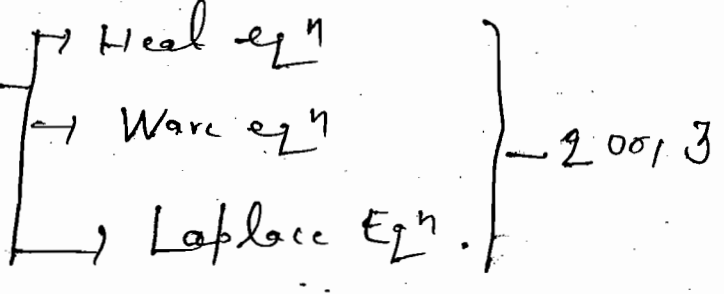 → Heat eqⁿ
→ Wave eqⁿ
→ Laplace Eqⁿ.
} — 2 or, 3